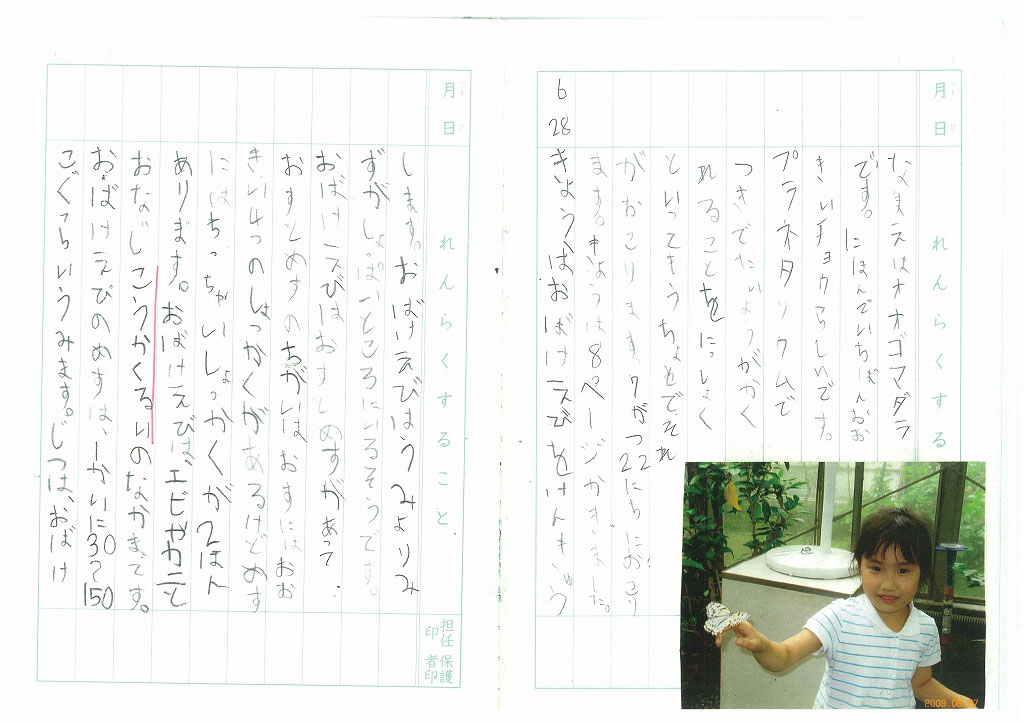 月 日 れんらくする
な美えはオオゴマダラ
です。にほんでいちばんおお
きいチョウらしいです。
プラネタリウムで
つきでたいようがかく
れることをにっしょく
といってもうちょとでそれ
がかこります。7がつ22にちにおこり
ます。きょうは8ページかきました。
6 28 きょうはおばけえびをけんきゅう
月 日 れんらくすること 担任印 保護者印
します。おばけえびはうみよりみ
ずがしょっぱいところにいるそうです。
おばけえびはおすとめすがあって.
おすとめすのちがいはおすにはおお
きい4つのしょっかくがあるけどめす
にはちっちゃいしょっかくが2ほん
あります。おばけえびは、エビやカニと
おなじこうかくるいのなかまです。
おばけえびのめすは、1かいに30〜150
こぐらいうみます。じつは、おばけ